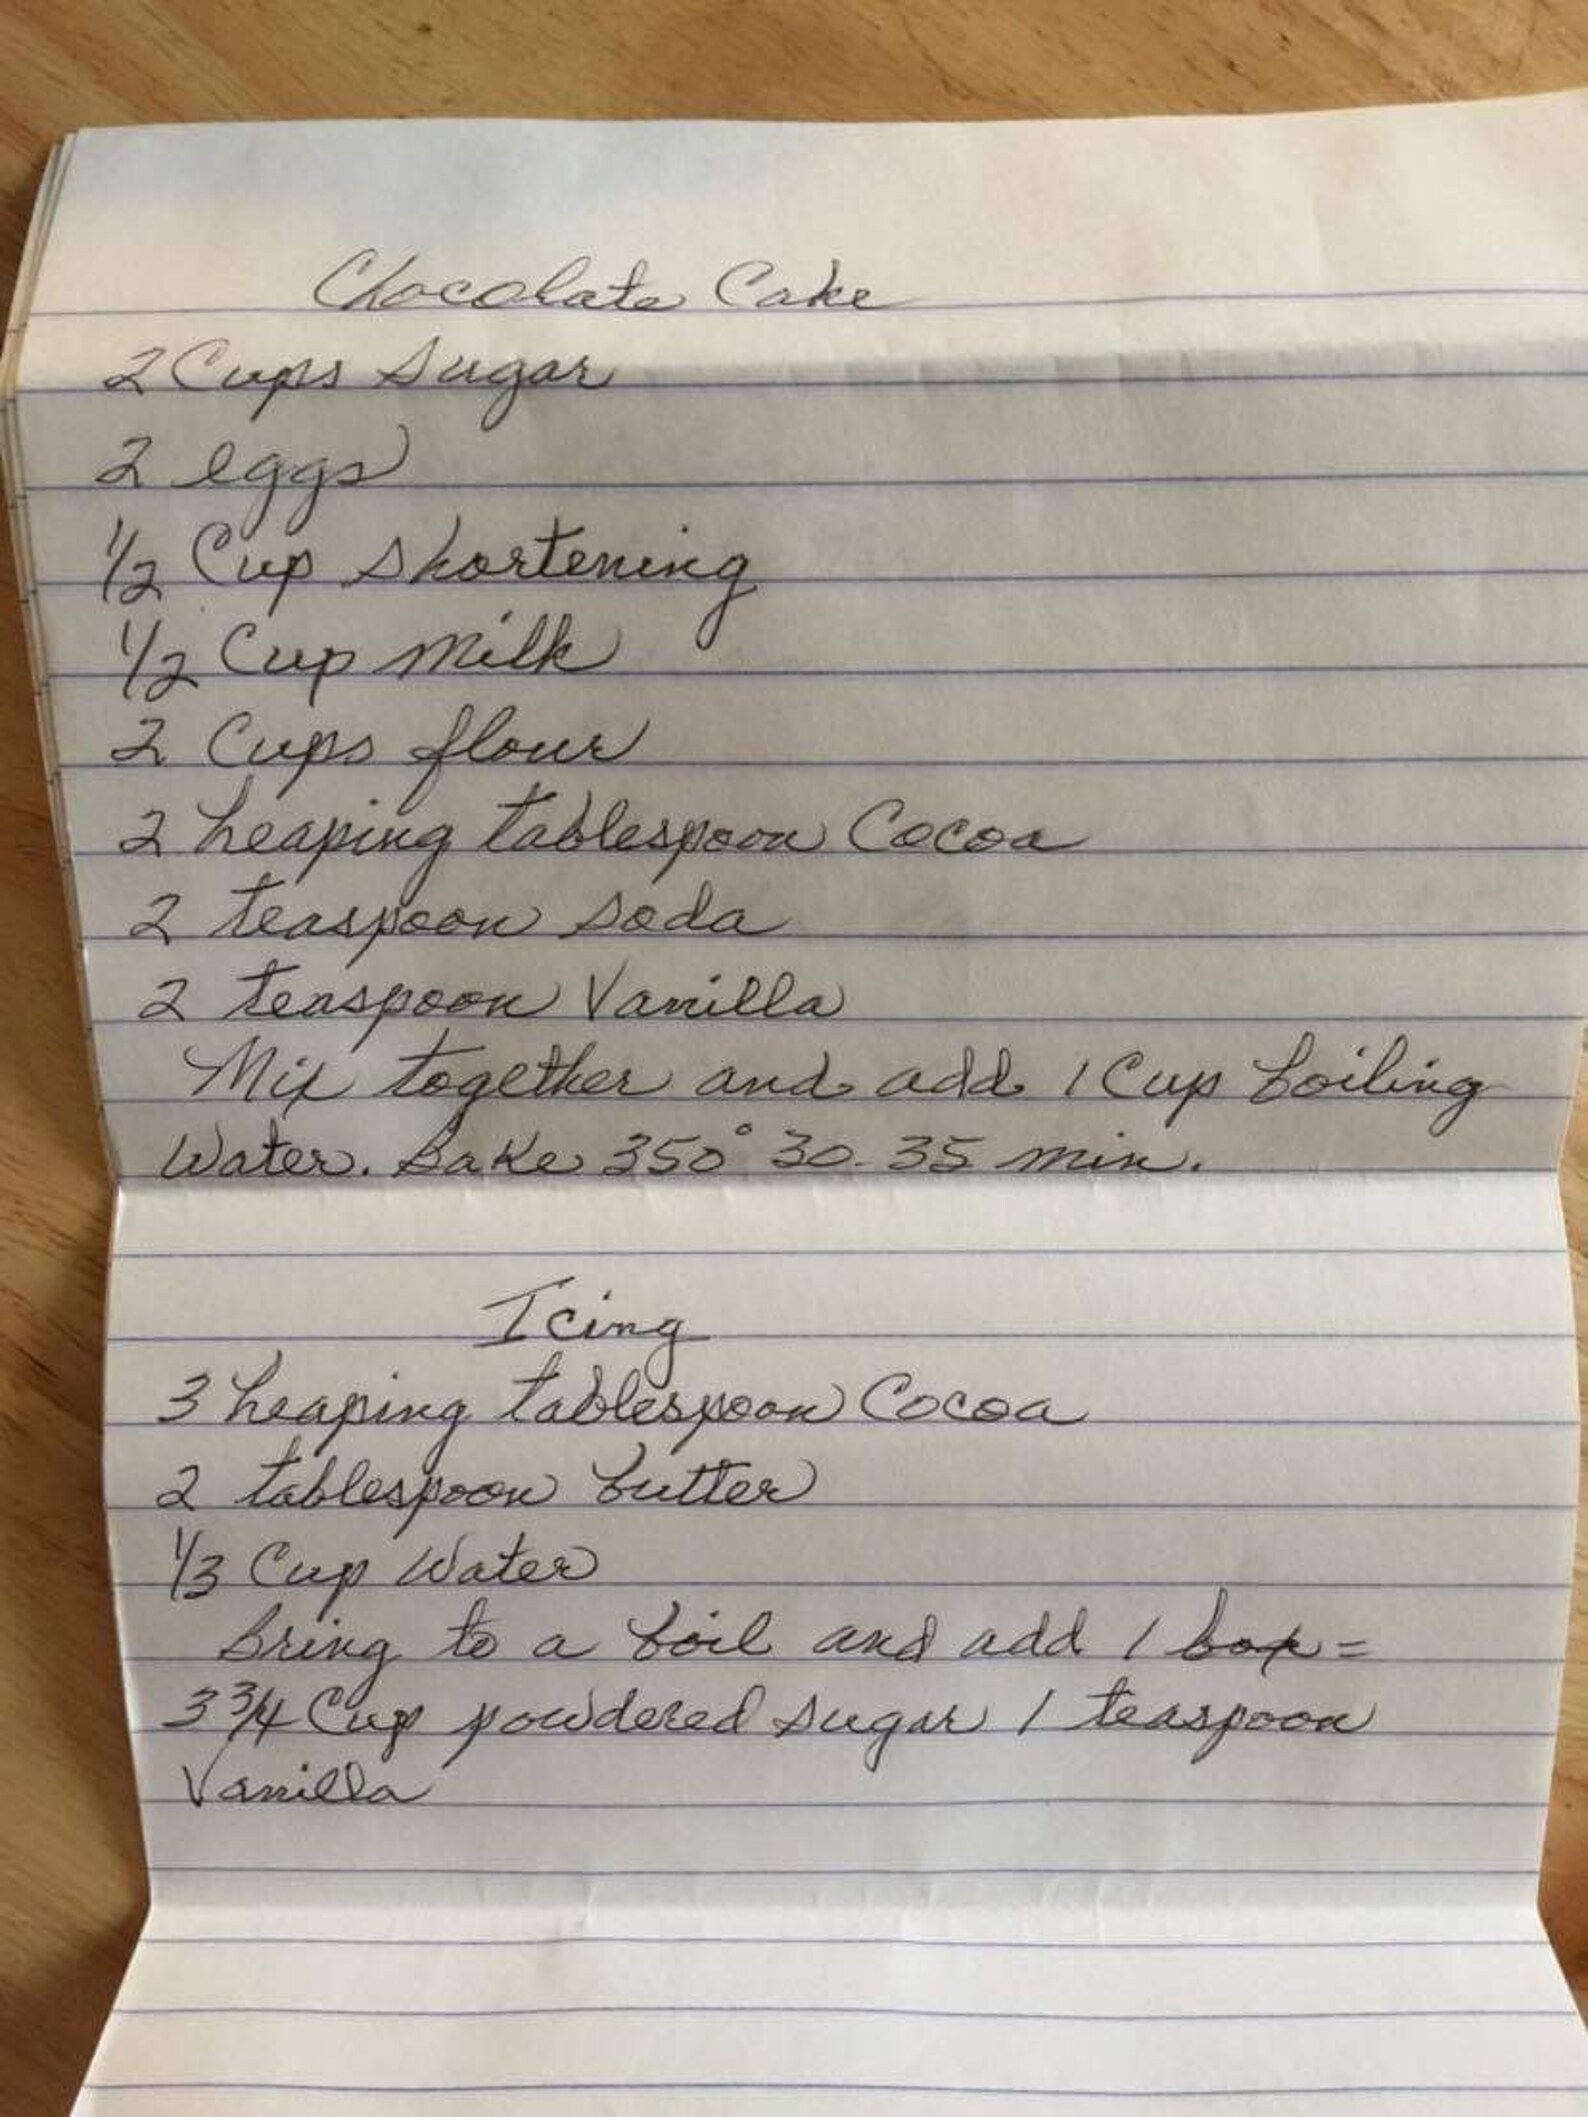 Chocolate Cake
2 Cups sugar
2 eggs
1/2 Cup shortening
1/2 Cup milk
2 Cups flour
2 heaping tablespoon Cocoa
2 teaspoon soda
2 teaspoon Vanilla
Mix together and add 1 Cup boiling
Water. Bake 350° 30-35 min.
Icing
3 heaping tablespoon Cocoa
2 tablespoon butter
1/3 Cup Water
Bring to a boil and add 1 box =
3 3/4 Cup powdered sugar 1 teaspoon
Vanilla